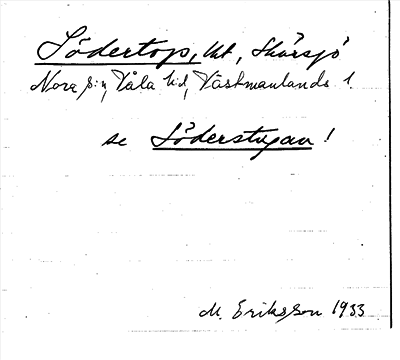 Södertop, ht, Skärsjö
Nora s:n, Våla hd, Västmanlands l.
se Söderstugan!
M. Eriksson 1933